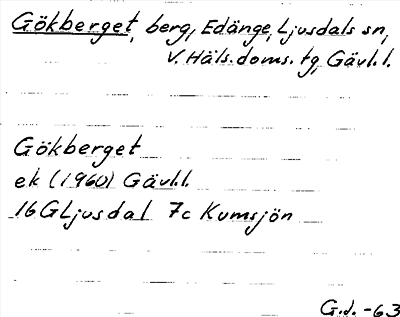 Gökberget, berg, Edänge, Ljusdals sn,
V. Häls. doms. tg, Gävl.l.
Gökberget
ek (1960) Gävl.l.
16G Ljusdal 7c Kumsjön
G.d. -63